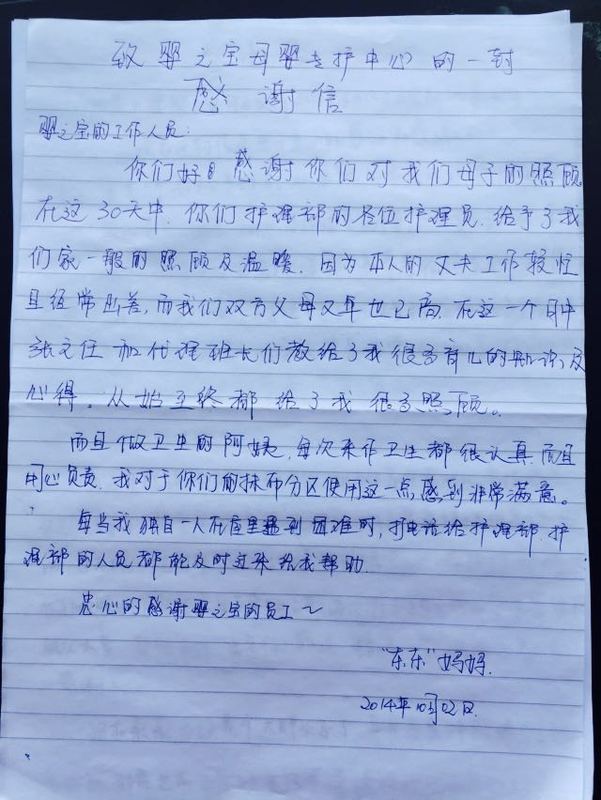 致婴之宝母婴专护中心的一封
感谢信
婴之宝的工作人员:
你们好!感谢你们对我们母子的照顾
在这30天中.你们护理部的各位护理员.给予了我
们家一般的照顾及温暖.因为本人的丈夫工作较忙
且经常出差,而我们双方父母又年世已高.在这一个月中
张主任 和代理班长们教给了我很多育儿的知识及
心得。从始至终都给了我很多照顾。
而且做卫生的阿姨.每次来作卫生都很认真.而且
用心负责.我对于你们的抹布分区使用这一点感到非常满意。
每当我独自一人在屋里遇到困难时,打电话给护理部.护
理部的人员都能及时过来给我帮助.
忠心的感谢婴之宝的员工~
"东东"妈妈.
2014年10月02日.